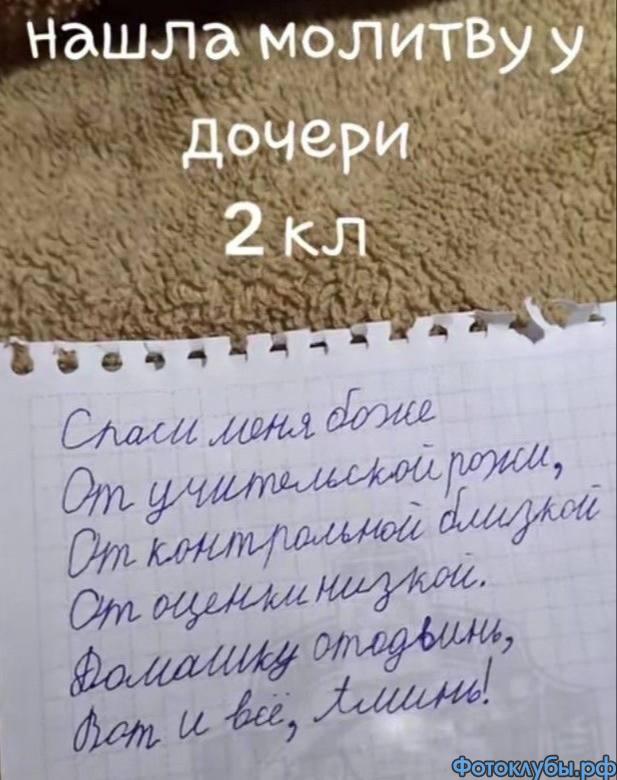 нашла молитву у
дочери
2 кл
Спаси меня боже
От учительской рожи,
От контрольной близкой
От оценки низкой.
Домашку отодвинь,
Вот и всё, Аминь!
Фотоклубы.рф